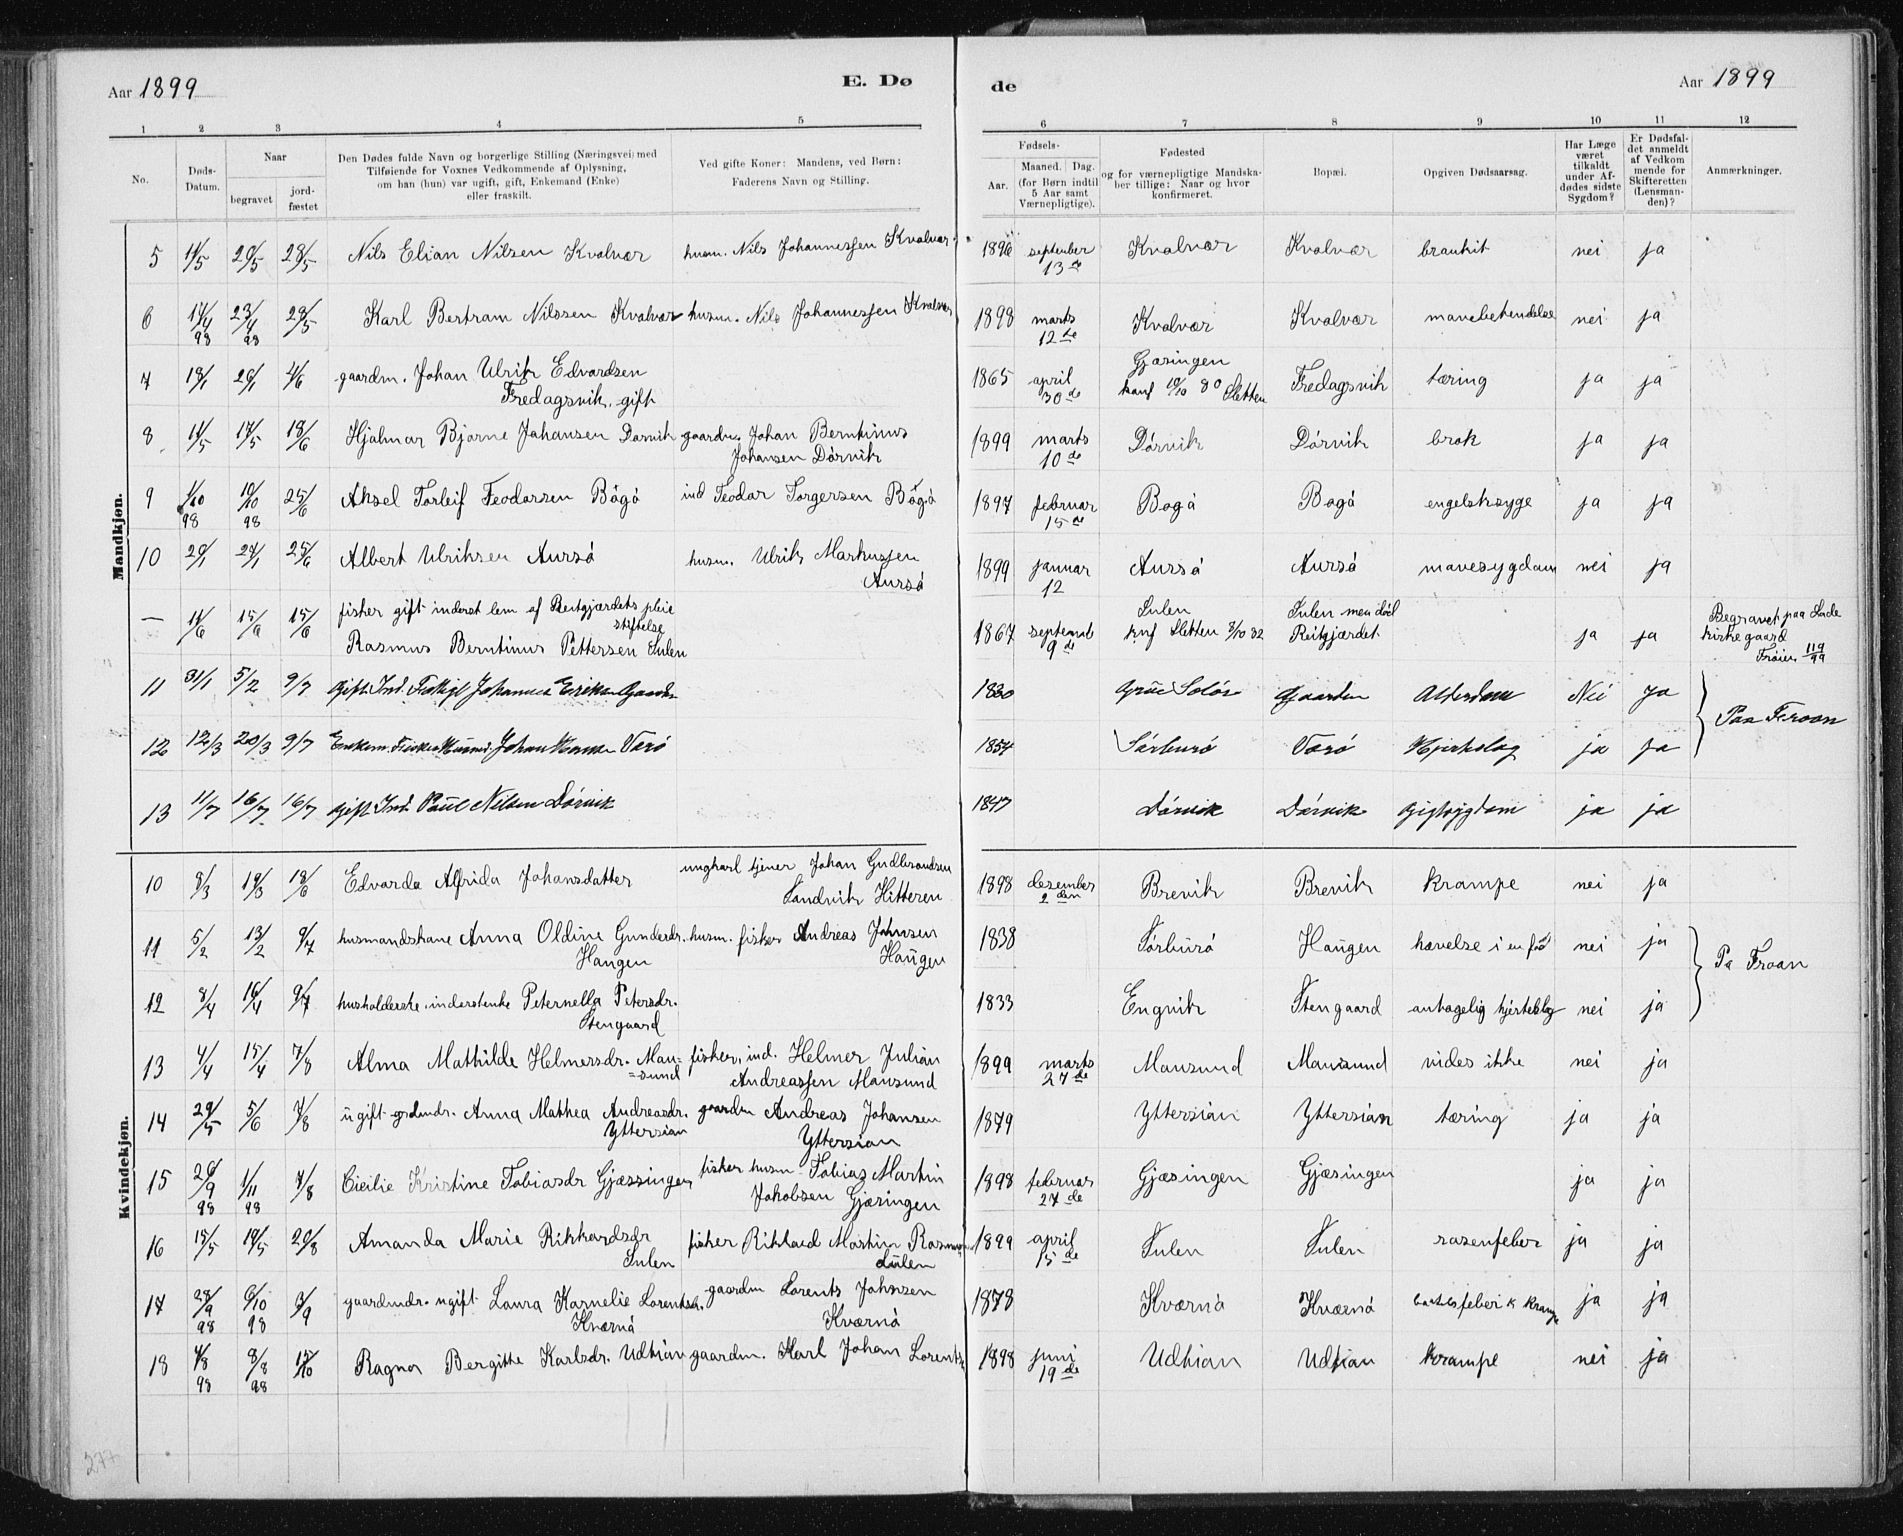 Aar 1899 E. Dø de Aar 1899
1 2 3 4 5 6 7 8 9 10 11 12
No. Døds-Datum. Naar begravet jord-fæstet
Den Dødes fulde Navn og borgerlige Stilling (Næringsvei) med
Tilføiende for Voxnes Vedkommende af Oplysning,
om han (hun) var ugift, gift, Enkemand (Enke)
eller fraskilt.
Ved gifte Koner: Mandens, ved Børn:
Faderens Navn og Stilling.
Fødsels-
Aar. Maaned. Dag.
(for Børn indtil
5 Aar samt
Værnepligtige).
Fødested
og for værnepligtige Mandska-
ber tillige: Naar og hvor
konfirmeret.
Bopæl.
Opgiven Dødsaarsag.
Har Læge
været
tilkaldt
under Af-
dødes sidste
Sygdom?
Er Dødsfal-
det anmeldt
af Vedkom
mende for
Skifteretten
(Lensman-
den)?
Anmærkninger.
Mandkjøn.
5 11/5 20/5 28/5 Nils Elian Nilsen Kvalvær husm. Nils Johannessen Kvalvær 1896 september Kvalvær Kvalvær brankit nei ja
13de
6 17/4 23/4 28/5 Karl Bertram Nilssen Kvalvær husm. Nils Johannessen Kvalvær 1898 marts Kvalvær Kvalvær mavebetendelse nei ja
98 98 12de
7 18/1 26/1 4/6 gaardm. Johan Ulrik Edvardsen 1865 april Gjæsingen Fredagsvik tæring ja ja
Fredagsvik, gift 30de konf 10/10 80 Sletten
8 11/5 17/5 18/6 Hjalmar Bjarne Johansen Dørvik gaardm. Johan Berntinus 1899 marts Dørvik Dørvik brok ja ja
Johansen Dørvik 10de
9 1/10 10/10 25/6 Aksel Torleif Feodorsen Bogø ind Teodor Torgersen Bogø 1897 februar Bogø Bogø engelsksyge ja ja
98 98 15de
10 20/1 24/1 25/6 Albert Ulriksen Aursø husm. Ulrik Markussen 1899 januar Aursø Aursø mavesygdom nei ja
Aursø 12
— 11/6 15/6 15/6 fisker gift inderst lem af Reitgjærdets pleie 1867 septemb Sulen Sulen men død ja ja Begravet paa Lade
stiftelse 9de knf Sletten 8/10 82 Reitgjærdet kirkegaard
Rasmus Berntinus Pettersen Sulen Frøien 119/99
11 31/1 5/2 9/7 Gift Ind. Johannes Gaarden 1830 Grüe Solør Gaarden Alderdom Nei ja
12 12/3 20/3 9/7 Enkem. Fisker Johan Værø 1854 Sørburø Værø Hjerteslag ja ja Paa Froan
13 11/7 16/7 16/7 Gift Ind. Paul Nilsen Dørvik 1847 Dørvik Dørvik Gigtsygdom ja ja
Kvindekjøn.
10 8/3 19/3 18/6 Edvarda Alfrida Johansdatter ungkarl tjener Johan Gudbrandsen 1898 desember Brevik Brevik krampe nei ja
Sandvik Hitteren 2den
11 5/2 13/2 9/7 husmandskone Anna Oldine Gundersdr. husm. fisker Andreas Johnsen 1838 Sørburø Haugen hævelse i en fod nei ja
Haugen Haugen
12 8/4 16/4 9/7 husholderske, inderstenke Peternella Petersdr. 1833 Engvik Stengaard antagelig hjerteslag nei ja Pa Froan
Stengaard
13 4/4 15/4 7/8 Alma Mathilde Helmersdr. Mau= fisker, ind. Helmer Julian 1899 marts Mausund Mausund vides ikke nei ja
=sund Andreassen Mausund 27de
14 29/5 5/6 7/8 ugift grdmdr. Anna Mathea Andreasdr. gaardm Andreas Johansen 1879 Yttersian Yttersian tæring ja ja
Yttersian Yttersian
15 26/9 1/11 7/8 Cicilie Kristine Tobiasdr Gjæssingen fisker husm Tobias Martin 1898 februar Gjæsingen Gjæsingen ja ja
98 98 Jakobsen Gjæsingen 27de
16 15/5 19/5 20/8 Amanda Marie Rikkardsdr fisker Rikkard Martin 1899 april Sulen Sulen rosenfeber ja ja
Sulen Sulen 15de
17 28/9 6/10 3/9 gaardmdr. ugift Laura Kornelie Lorentsdr. gaardm Lorents Johnsen 1878 Kværnø Kværnø ja ja
98 98 Kværnø Kværnø
18 4/8 8/8 15/10 Ragna Bergitte Karlsdr. Udtian gaardm. Karl Johan Lorents 1898 juni Udtian Udtian krampe nei ja
98 98 19de
277